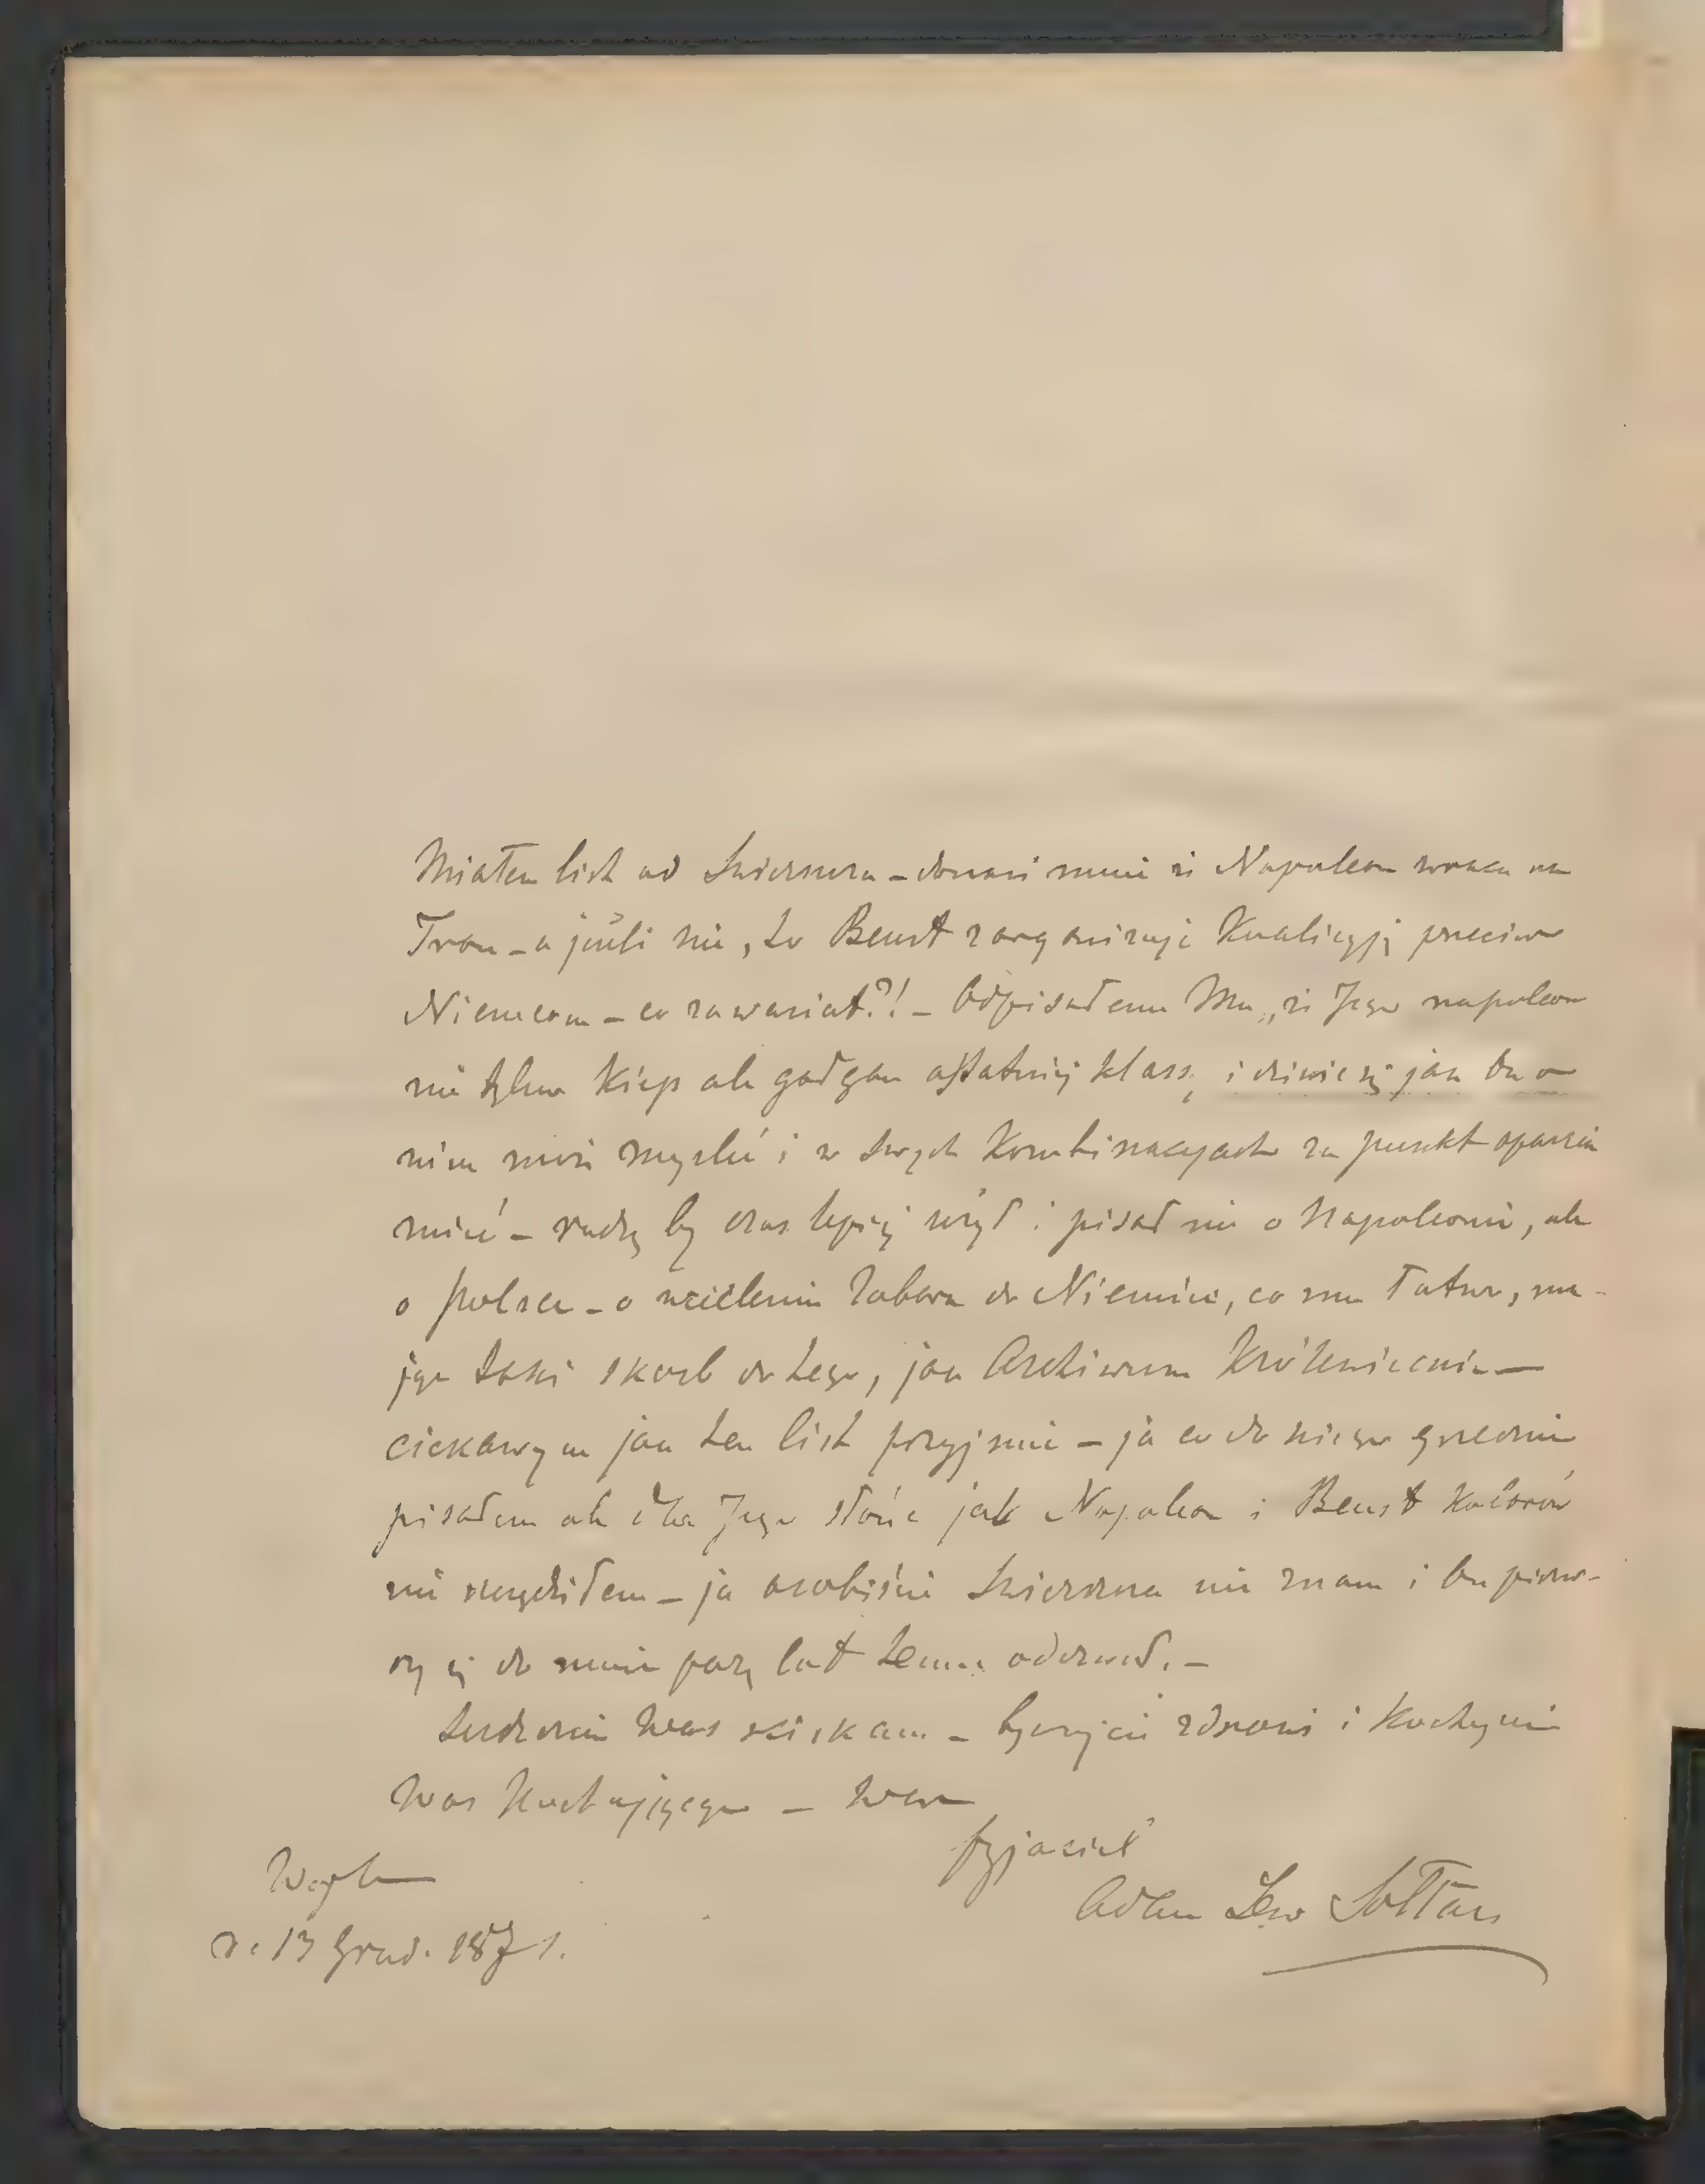 Miałem list od - donosi mnie iż Napoleon wraca na
Tron - a jeśli nie, to Beust zorganizuje Koalicyją przeciw
Niemcom - co za waryat?! - Odpisałem Mu, iż Jego napoleon
nie tylko Kiep ale gałgan ostatniej klassy i dziwię się jak on o
nim może myśleć i w swych Kombinacyach za punkt oparcia
mieć - radzę by czas lepiej użył i pisał nie o Napoleonie, ale
o polsce - o wcieleniu Zaboru do Niemiec, co mu łatwo, ma-
jąc taki skarb do tego, jak Archiwum Królewieckie -
ciekawym jak ten list przyjmie - ja co do niego grzecznie
pisałem ale dla Jego słońc jak Napoleon i Beust kolorów
nie szczędziłem - ja osobiście nie znam i on pierw-
szy się do mnie parę lat temu odezwał. -
Serdecznie Was ściskam - bywajcie zdrowi i Kochajcie
Was Kochającego - Wasz
przyjaciel
Adam Lew Sołtan
d. 13 Grud. 1871.